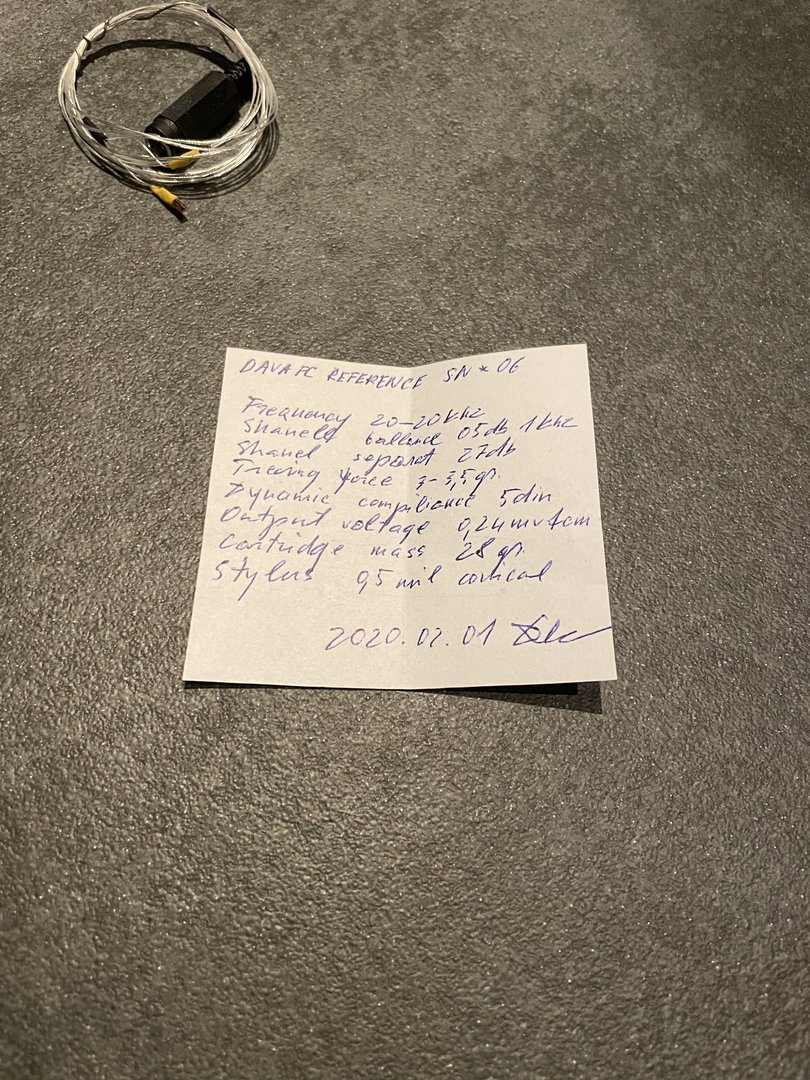 DAVA FC REFERENCE SN * 06
Frequency 20-20 khz
Shanell ballence 05 db 1 khz
Shanel separat 27 db
Treeing force 3-3,5 gr.
Dynamic compiliance 5 din
Output voltage 0,24 mv
Cartridge mass 28 gr.
Stylus 0,5 mil conical
2020.02.01